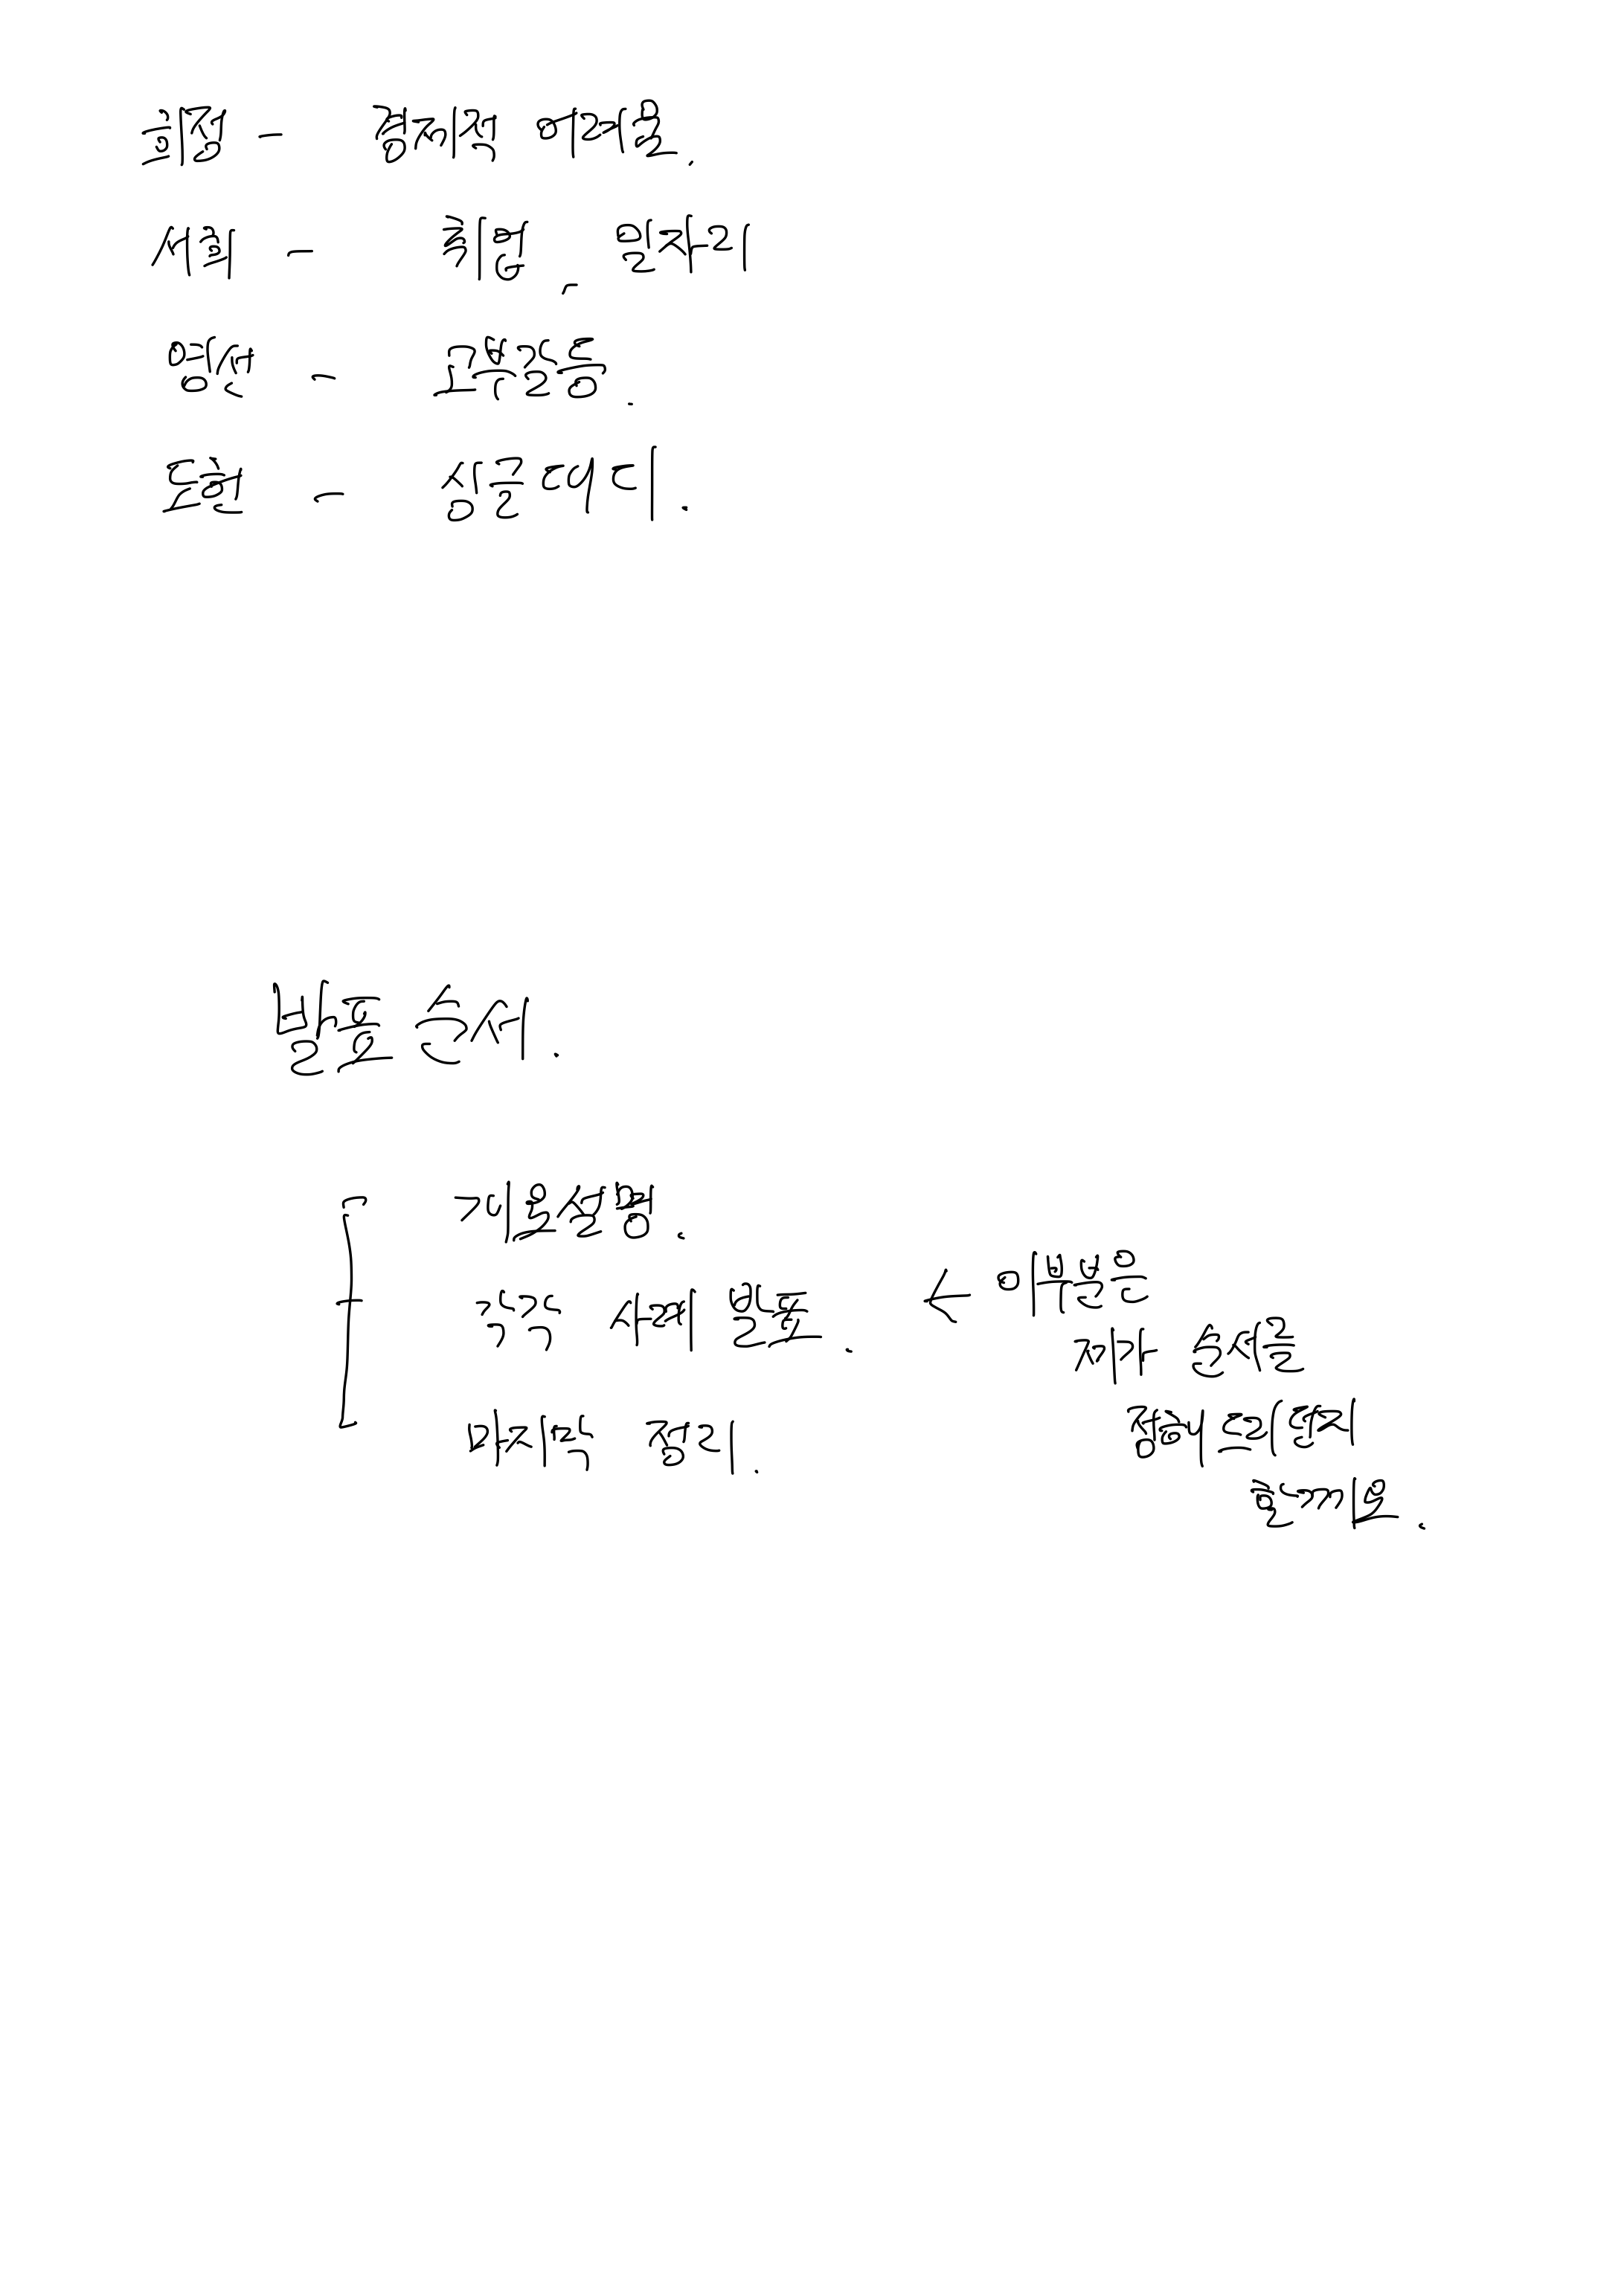 희정 - 경제적 어려움.
서희 - 취업, 일자리
영선 - 고부갈등.
도현 - 싱글대디.
발표 순서.
개요설명.
각각 사례 발표. ← 이부분은
제가 순서를
정해 드리던지
할게요.
마지막 정리.